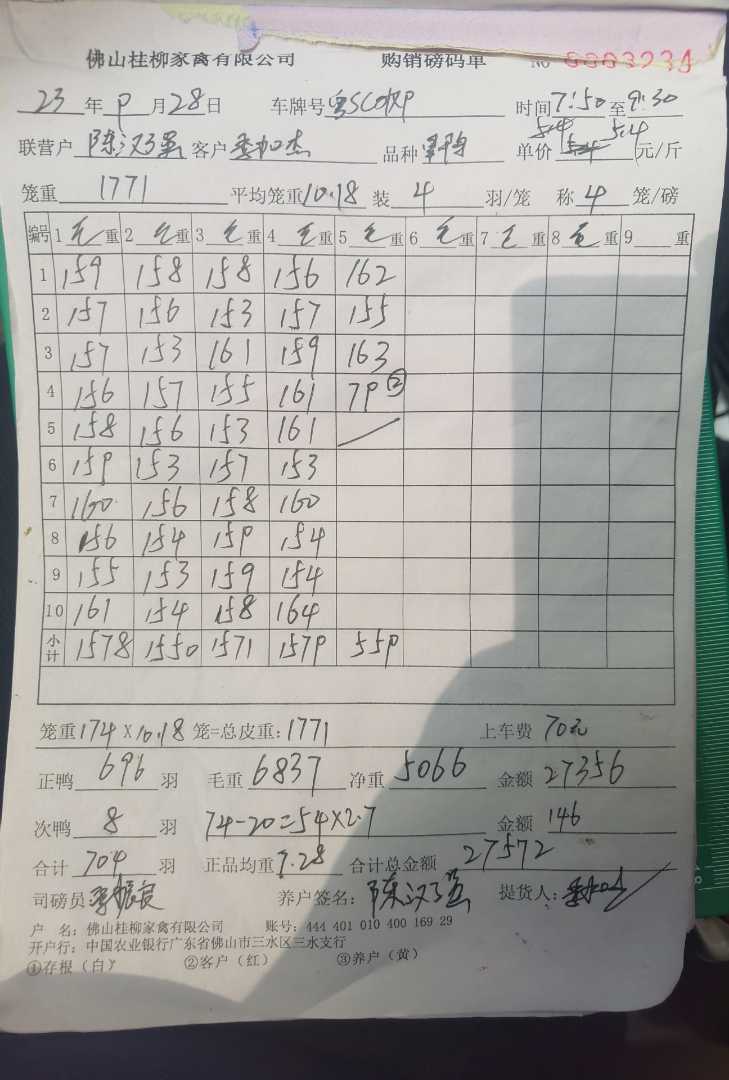 佛山桂柳家禽有限公司 购销磅码单 No 0003234
23 年 9 月 28 日 车牌号 粤 时间 7:50 至 9:30
联营户 陈汉强 客户 李加杰 品种 单价 5.4 5.4 元/斤
笼重 1771 平均笼重 10.18 装 4 羽/笼 称 4 笼/磅
编号 1 毛 重 2 毛 重 3 毛 重 4 毛 重 5 毛 重 6 毛 重 7 毛 重 8 毛 重 9 重
1 159 158 158 156 162
2 157 156 153 157 155
3 157 153 161 159 163
4 156 157 155 161 79 ②
5 158 156 153 161
6 159 153 157 153
7 160 156 158 160
8 156 154 159 154
9 155 153 159 154
10 161 154 158 164
小计 1578 1550 1571 1579 559
笼重 174 × 10.18 笼=总皮重: 1771 上车费 70元
正鸭 696 羽 毛重 6837 净重 5066 金额 27356
次鸭 8 羽 74-20=54×2.7 金额 146
合计 704 羽 正品均重 7.28 合计总金额 27572
司磅员 养户签名: 陈汉强 提货人:
户 名: 佛山桂柳家禽有限公司 账号: 444 401 010 400 169 29
开户行: 中国农业银行广东省佛山市三水区三水支行
①存根（白） ②客户（红） ③养户（黄）